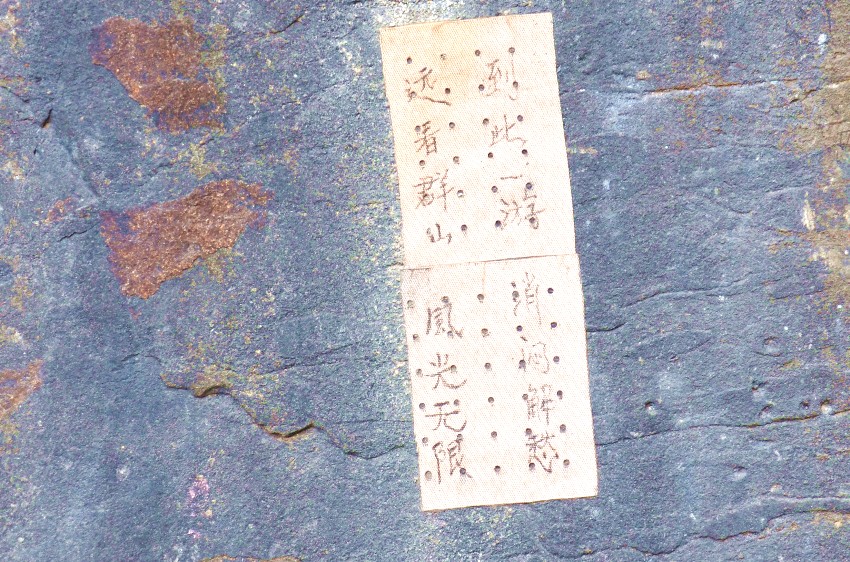 到此一游
消闷解愁
远看群山
风光无限